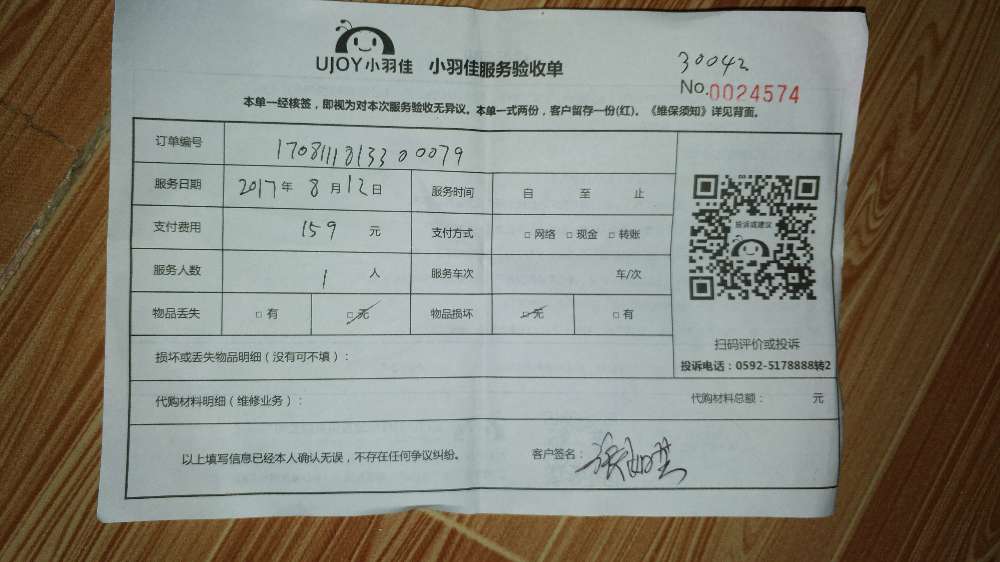 UJOY小羽佳 小羽佳服务验收单
30042
No.0024574
本单一经核签，即视为对本次服务验收无异议。本单一式两份，客户留存一份(红)。《维保须知》详见背面。
订单编号 170811181333 00079
服务日期 2017年8月12日 服务时间 自 至 止
支付费用 159 元 支付方式 □ 网络 □ 现金 □ 转账
投诉或建议
服务人数 1 人 服务车次 车/次
物品丢失 □ 有 □ 无 物品损坏 □ 无 □ 有
扫码评价或投诉
损坏或丢失物品明细（没有可不填）：
投诉电话：0592-5178888转2
代购材料明细（维修业务）： 代购材料总额： 元
以上填写信息已经本人确认无误，不存在任何争议纠纷。 客户签名：